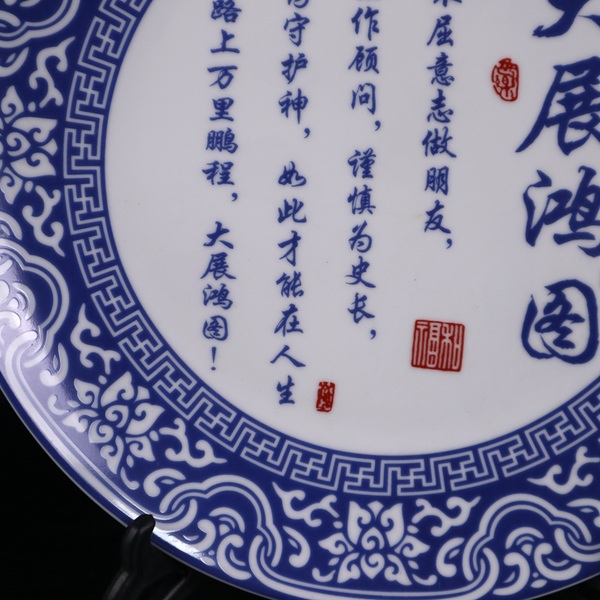 展鸿图
屈意志做朋友，
作顾问，谨慎为史长，
守护神，如此才能在人生
路上万里鹏程，大展鸿图！